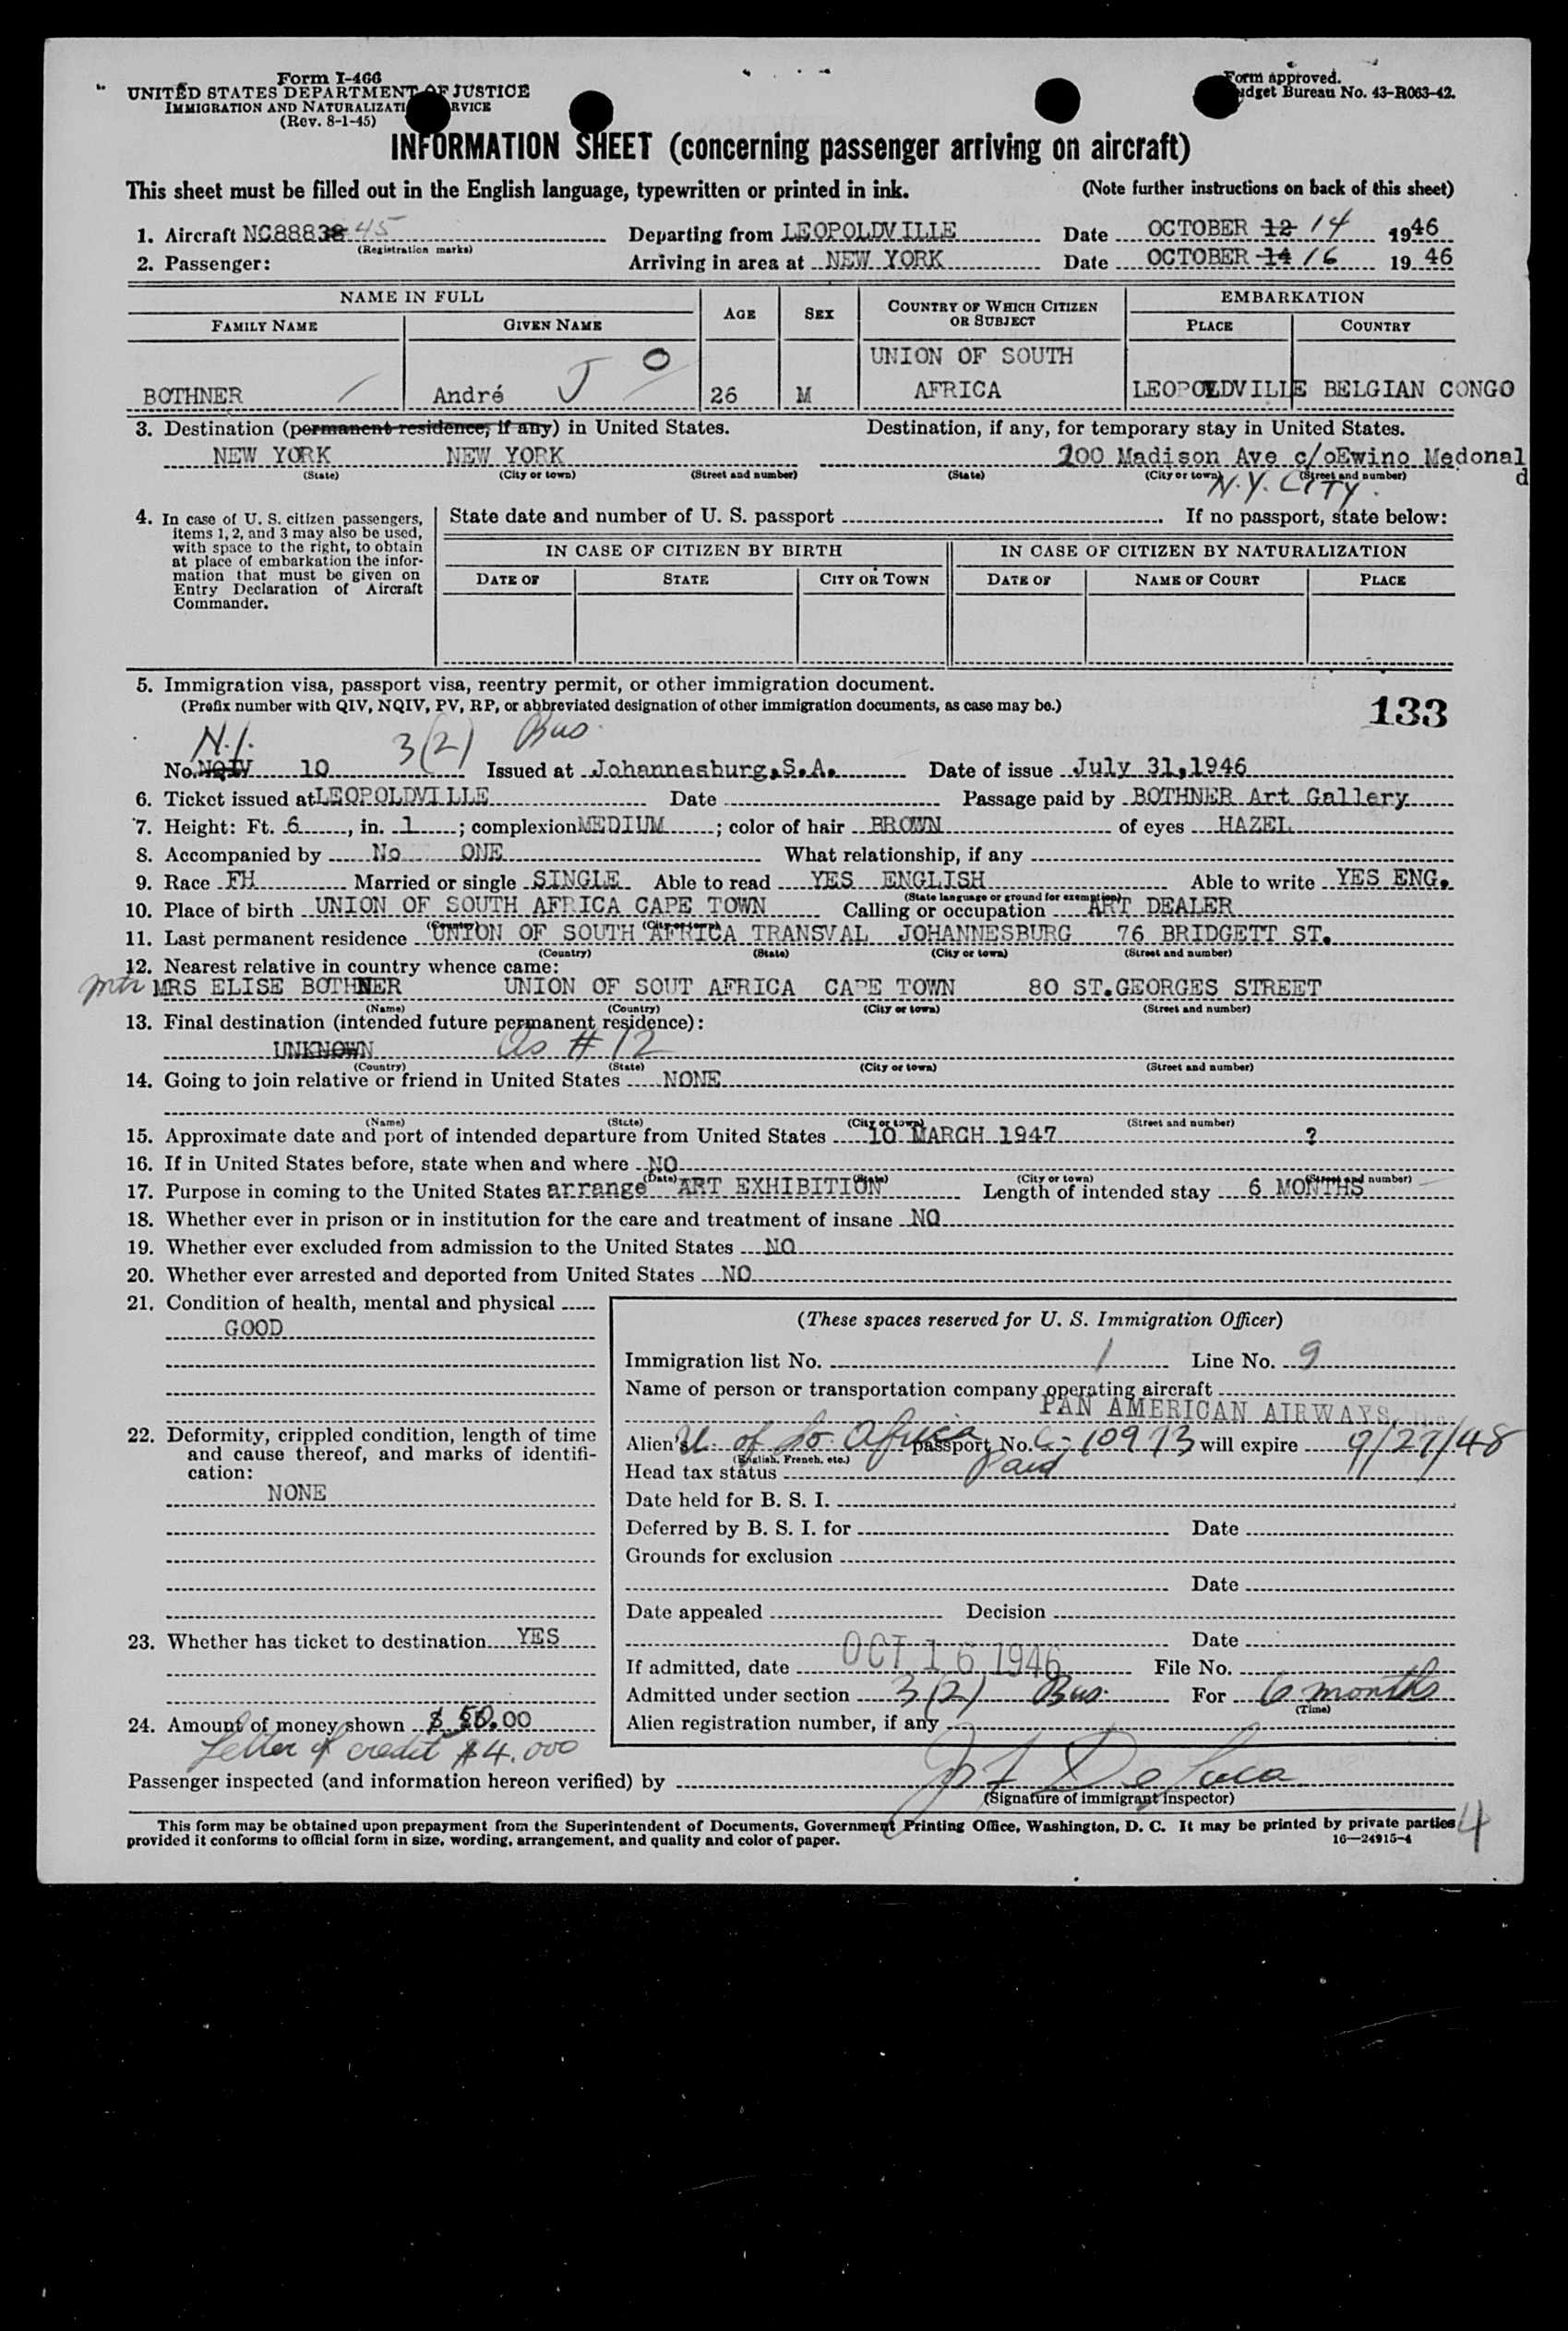 Form I-466
UNITED STATES DEPARTMENT OF JUSTICE
IMMIGRATION AND NATURALIZATI RVICE
(Rev. 8-1-45)
Form approved.
dget Bureau No. 43-R063-42.
INFORMATION SHEET (concerning passenger arriving on aircraft)
This sheet must be filled out in the English language, typewritten or printed in ink. (Note further instructions on back of this sheet)
1. Aircraft NC88838 45 Departing from LEOPOLDVILLE Date OCTOBER 12 14 1946
(Registration marks)
2. Passenger: Arriving in area at NEW YORK Date OCTOBER 14 16 1946
NAME IN FULL AGE SEX COUNTRY OF WHICH CITIZEN OR SUBJECT EMBARKATION
FAMILY NAME GIVEN NAME PLACE COUNTRY
UNION OF SOUTH
BOTHNER André J O 26 M AFRICA LEOPOLDVILLE BELGIAN CONGO
3. Destination (permanent residence, if any) in United States. Destination, if any, for temporary stay in United States.
NEW YORK NEW YORK 200 Madison Ave c/oEwino Medonal
d
(State) (City or town) (Street and number) (State) (City or town) (Street and number)
N.Y. CITY.
4. In case of U. S. citizen passengers, items 1, 2, and 3 may also be used, with space to the right, to obtain at place of embarkation the information that must be given on Entry Declaration of Aircraft Commander.
State date and number of U. S. passport If no passport, state below:
IN CASE OF CITIZEN BY BIRTH IN CASE OF CITIZEN BY NATURALIZATION
DATE OF STATE CITY OR TOWN DATE OF NAME OF COURT PLACE
5. Immigration visa, passport visa, reentry permit, or other immigration document.
(Prefix number with QIV, NQIV, PV, RP, or abbreviated designation of other immigration documents, as case may be.)
133
N.I. 3(2) Bus.
No. NQIV 10 Issued at Johannesburg,S.A. Date of issue July 31,1946
6. Ticket issued at LEOPOLDVILLE Date Passage paid by BOTHNER Art Gallery
7. Height: Ft. 6, in. 1; complexion MEDIUM; color of hair BROWN of eyes HAZEL
8. Accompanied by No ONE What relationship, if any
9. Race FH Married or single SINGLE Able to read YES ENGLISH Able to write YES ENG.
(State language or ground for exemption)
10. Place of birth UNION OF SOUTH AFRICA CAPE TOWN Calling or occupation ART DEALER
(Country) (City or town)
11. Last permanent residence UNION OF SOUTH AFRICA TRANSVAL JOHANNESBURG 76 BRIDGETT ST.
(Country) (State) (City or town) (Street and number)
12. Nearest relative in country whence came:
mtr MRS ELISE BOTHNER UNION OF SOUT AFRICA CAPE TOWN 80 ST.GEORGES STREET
(Name) (Country) (City or town) (Street and number)
13. Final destination (intended future permanent residence):
UNKNOWN As # 12
(Country) (State) (City or town) (Street and number)
14. Going to join relative or friend in United States NONE
(Name) (State) (City or town) (Street and number)
15. Approximate date and port of intended departure from United States 10 MARCH 1947 ?
16. If in United States before, state when and where NO
(Date) (State) (City or town) (Street and number)
17. Purpose in coming to the United States arrange ART EXHIBITION Length of intended stay 6 MONTHS
18. Whether ever in prison or in institution for the care and treatment of insane NO
19. Whether ever excluded from admission to the United States NO
20. Whether ever arrested and deported from United States NO
21. Condition of health, mental and physical
GOOD
22. Deformity, crippled condition, length of time and cause thereof, and marks of identification:
NONE
23. Whether has ticket to destination YES
24. Amount of money shown $ 50.00
Letter of credit $4,000
(These spaces reserved for U. S. Immigration Officer)
Immigration list No. 1 Line No. 9
Name of person or transportation company operating aircraft
PAN AMERICAN AIRWAYS,
Alien's U. of So. Africa passport No. C-10973 will expire 9/27/48
(English, French, etc.)
Head tax status Paid
Date held for B. S. I.
Deferred by B. S. I. for Date
Grounds for exclusion
Date
Date appealed Decision
Date
If admitted, date OCT 16 1946 File No.
Admitted under section 3(2) Bus. For 6 months
(Time)
Alien registration number, if any
Passenger inspected (and information hereon verified) by
(Signature of immigrant inspector)
This form may be obtained upon prepayment from the Superintendent of Documents, Government Printing Office, Washington, D. C. It may be printed by private parties
provided it conforms to official form in size, wording, arrangement, and quality and color of paper. 16—24915-4
4